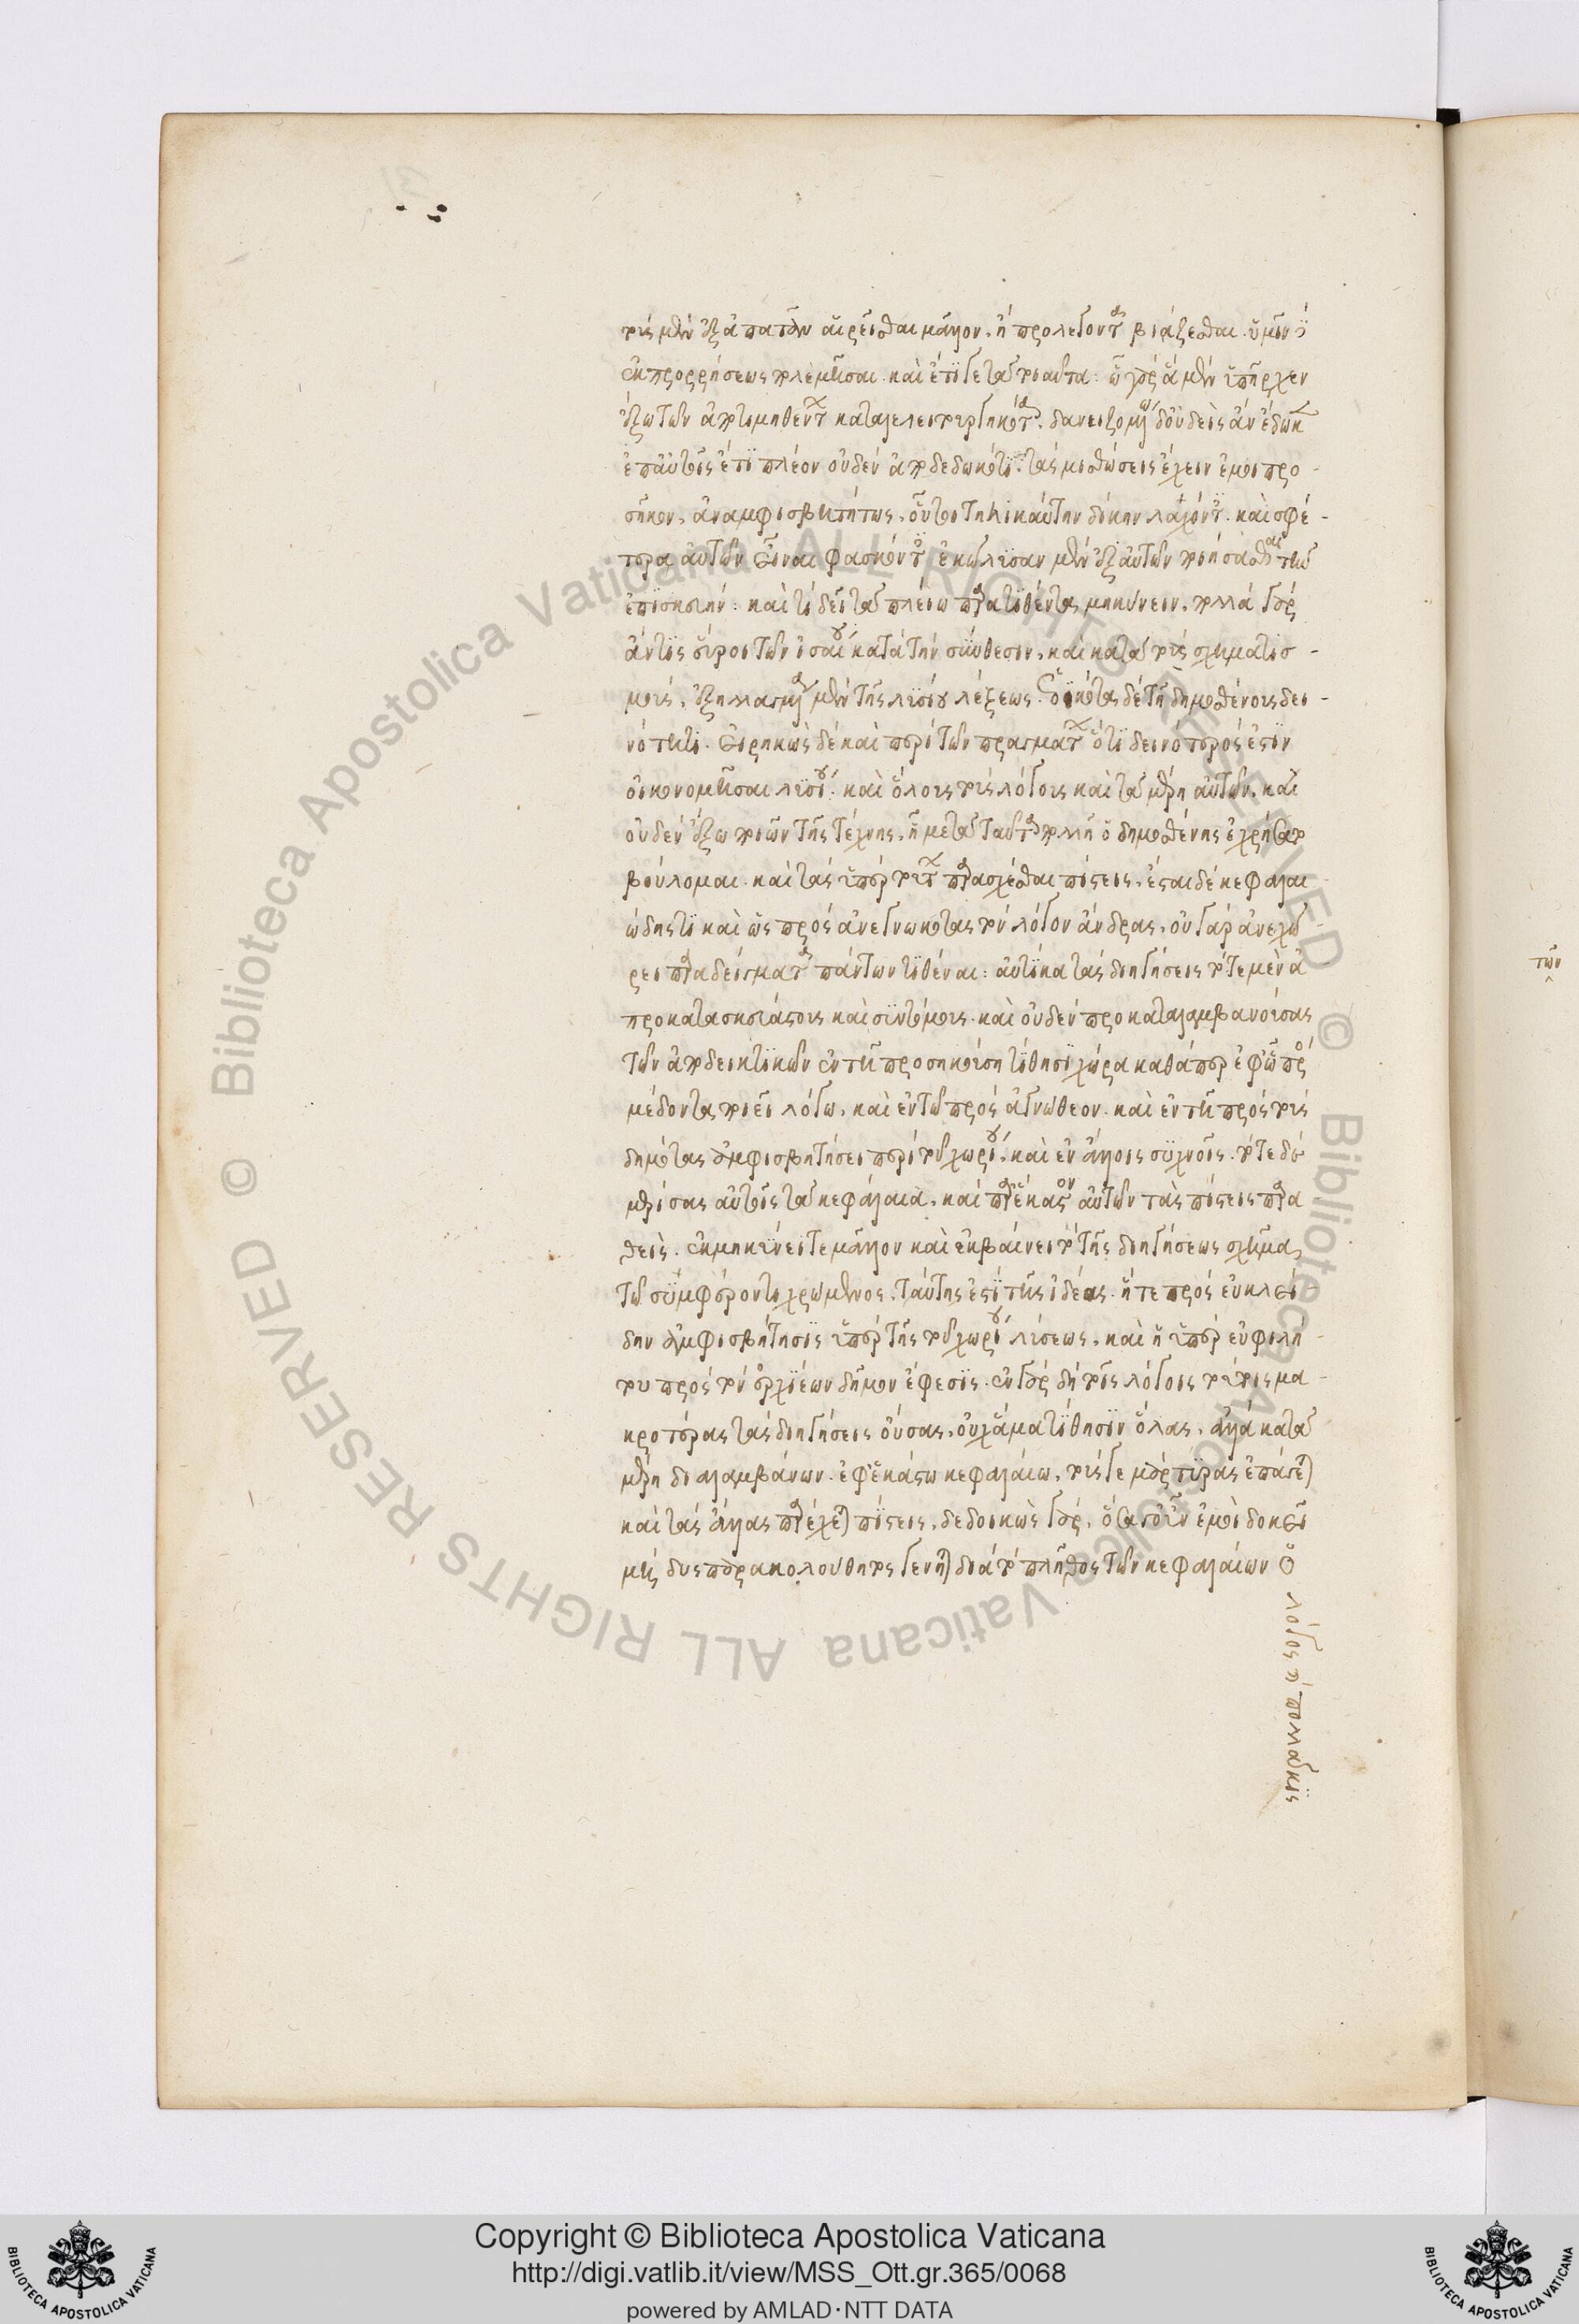 τοὺς μὲν ἐξαπατᾶν αἱρεῖσθαι μᾶλλον. ἢ προλέγοντας βιάζεσθαι.
ἐκ προρρήσεως πολεμῆσαι. καὶ ἔτι γε τὰ τοιαῦτα: ὧ γὰρ ἃ μὲν ὑπῆρχεν
ἔξω τῶν ἀποτιμηθέντων καταλελειτουργηκότα. δανειζομένω δ' οὐδεὶς ἂν ἔδωκεν
ἐπ' αὐτοῖς ἔτι πλέον οὐδὲν ἀποδεδωκότι. τὰς μισθώσεις ἔχειν ἐμοὶ προ-
σῆκον. ἀναμφισβητήτως. οὗτοι τηλικαύτην δίκην λαχόντες. καὶ σφέ-
τερα αὐτῶν εἶναι φάσκοντες ἐκώλυσαν μὲν ἐξ αὐτῶν ποιήσασθαι τὴν
ἐπισκευήν: καὶ τί δεῖ τὰ πλείω παρατιθέντα μηκύνειν. πολλὰ γὰρ
ἄν τις εὕροι τῶν ἰσαίου κατὰ τὴν σύνθεσιν. καὶ κατὰ τοὺς σχηματισ-
μούς. ἐξηλλαγμένα μὲν τῆς λυσίου λέξεως. ἐοικότα δὲ τῇ δημοσθένους δει-
νότητι. εἰρηκὼς δὲ καὶ περὶ τῶν πραγμάτων ὅτι δεινότερός ἐστιν
οἰκονομῆσαι λυσίου. καὶ ὅλους τοὺς λόγους καὶ τὰ μέρη αὐτῶν. καὶ
οὐδὲν ἔξω ποιῶν τῆς τέχνης. ᾗ μετὰ ταῦτα πολλῇ ὁ δημοσθένης ἐχρήσατο
βούλομαι. καὶ τὰς ὑπὲρ τούτων παρασχέσθαι πίστεις. ἔσται δὲ κεφαλαι
ώδης τις καὶ ὡς πρὸς ἀνεγνωκότας τὸν λόγον ἄνδρας. οὐ γὰρ ἀνεχώ
ρει παραδείγματα πάντων τιθέναι: αὐτίκα τὰς διηγήσεις τότε μὲν ἀ
προκατασκευάστους καὶ συντόμους. καὶ οὐδὲν προκαταλαμβανούσας
τῶν ἀποδεικτικῶν ἐν τῇ προσηκούση τίθησι χώρα καθάπερ
μέδοντα ποιεῖ λόγω. καὶ ἐν τῶ πρὸς ἁγνώθεον. καὶ ἐν τῇ πρὸς τοὺς
δημότας ἀμφισβητήσει περὶ τοῦ χωρίου. καὶ ἐν ἄλλοις συχνοῖς. τότε δὲ
μερίσας αὐτοῖς τὰ κεφάλαια. καὶ παρ' ἕκαστον αὐτῶν τὰς πίστεις παρα
θεὶς. ἐκμηκύνει τε μᾶλλον καὶ ἐκβαίνει τὸ τῆς διηγήσεως σχῆμα,
τῶ συμφέροντι χρώμενος. ταύτης ἐστὶ τῆς ἰδέας. ἥ τε πρὸς εὐκλεί
δην ἀμφισβήτησις ὑπὲρ τῆς τοῦ χωρίου λύσεως. καὶ ἡ ὑπὲρ εὐφιλή
του πρὸς τὸν ἐρχιέων δῆμον ἔφεσις. ἐν γὰρ δὴ τοῖς λόγοις τούτοις μα
κροτέρας τὰς διηγήσεις οὔσας. οὐχ ἅμα τίθησιν ὅλας. ἀλλὰ κατὰ
μέρη διαλαμβάνων. ἐφ' ἑκάστω κεφαλαίω. τούς γε μάρτυρας ἐπάγεται
καὶ τὰς ἄλλας παρέχεται πίστεις. δεδοικὼς γὰρ. ὅτε γοῦν ἐμοὶ δοκεῖ
μὴ δυσπαρακολούθητος γένηται διὰ τὸ πλῆθος τῶν κεφαλαίων ὁ
λόγος ἢ πολλάκις
τῶν
Copyright © Biblioteca Apostolica Vaticana
http://digi.vatlib.it/view/MSS_Ott.gr.365/0068
powered by AMLAD·NTT DATA
BIBLIOTECA APOSTOLICA VATICANA
BIBLIOTECA APOSTOLICA VATICANA
© Biblioteca Apostolica Vaticana ALL RIGHTS RESERVED © Biblioteca Apostolica Vaticana ALL RIGHTS RESERVED